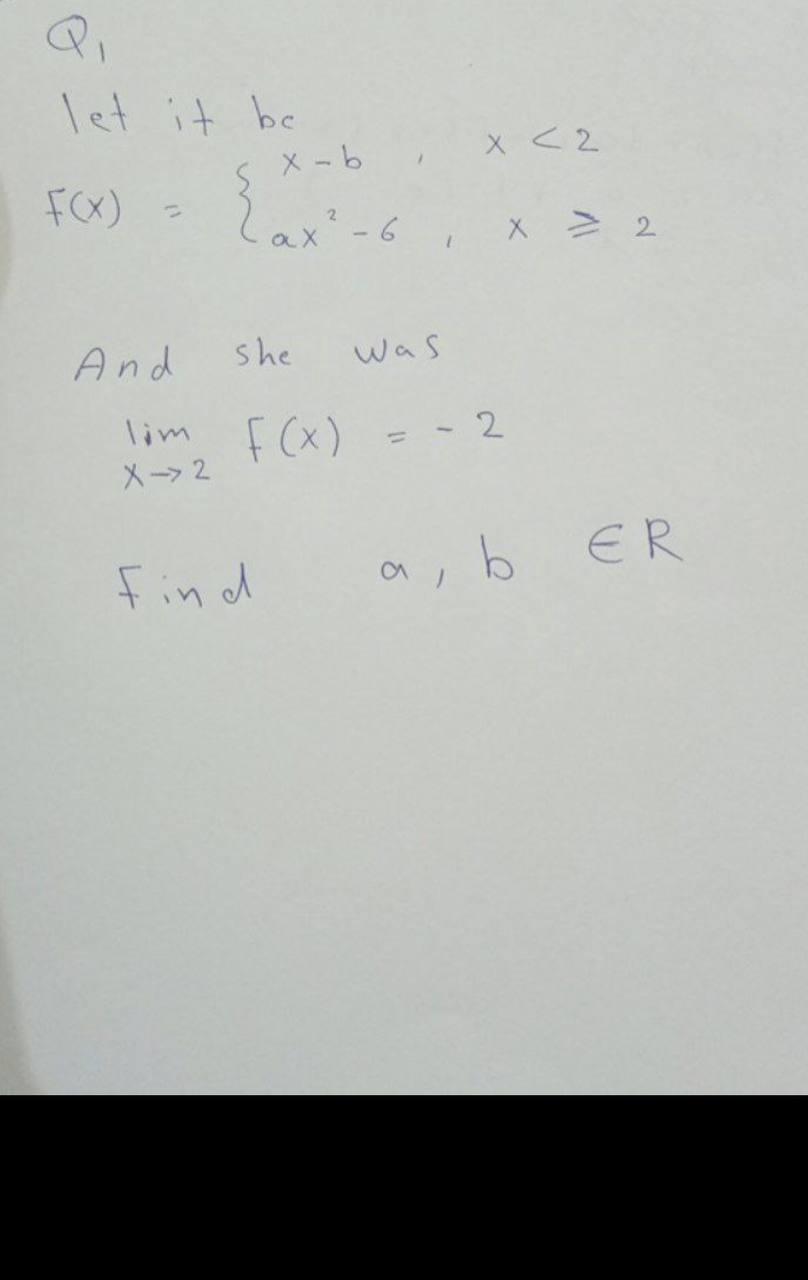 Q₁
let it be
F(x) = { x - b , x < 2
ax² - 6 , x ≥ 2
And she was
lim F(x) = - 2
x→2
Find a, b ∈ R